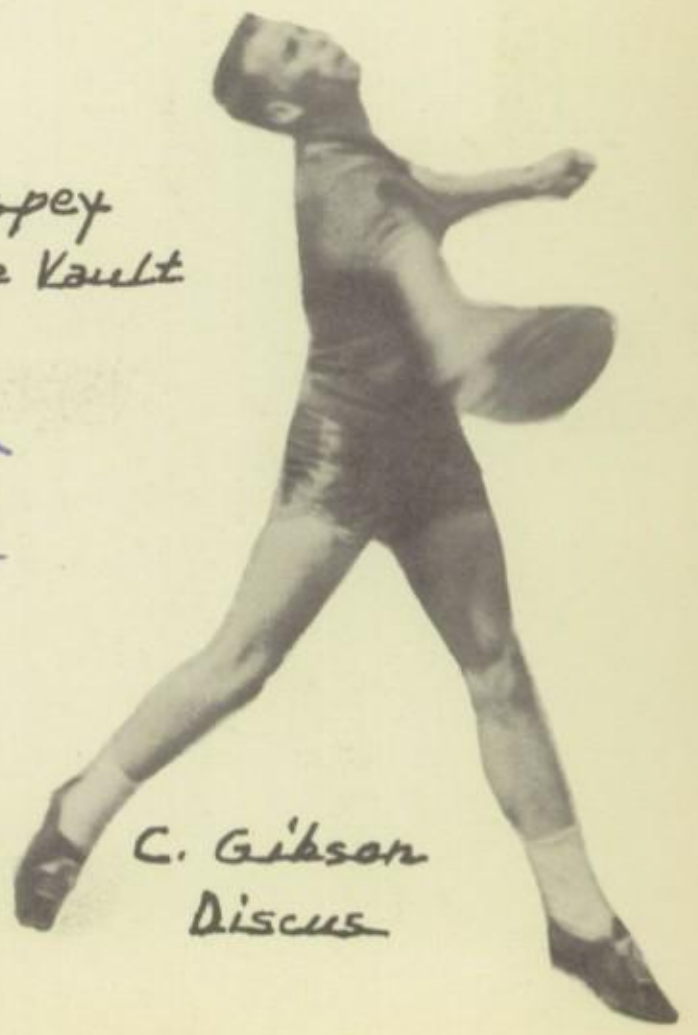 Vault
C. Gibson
Discus